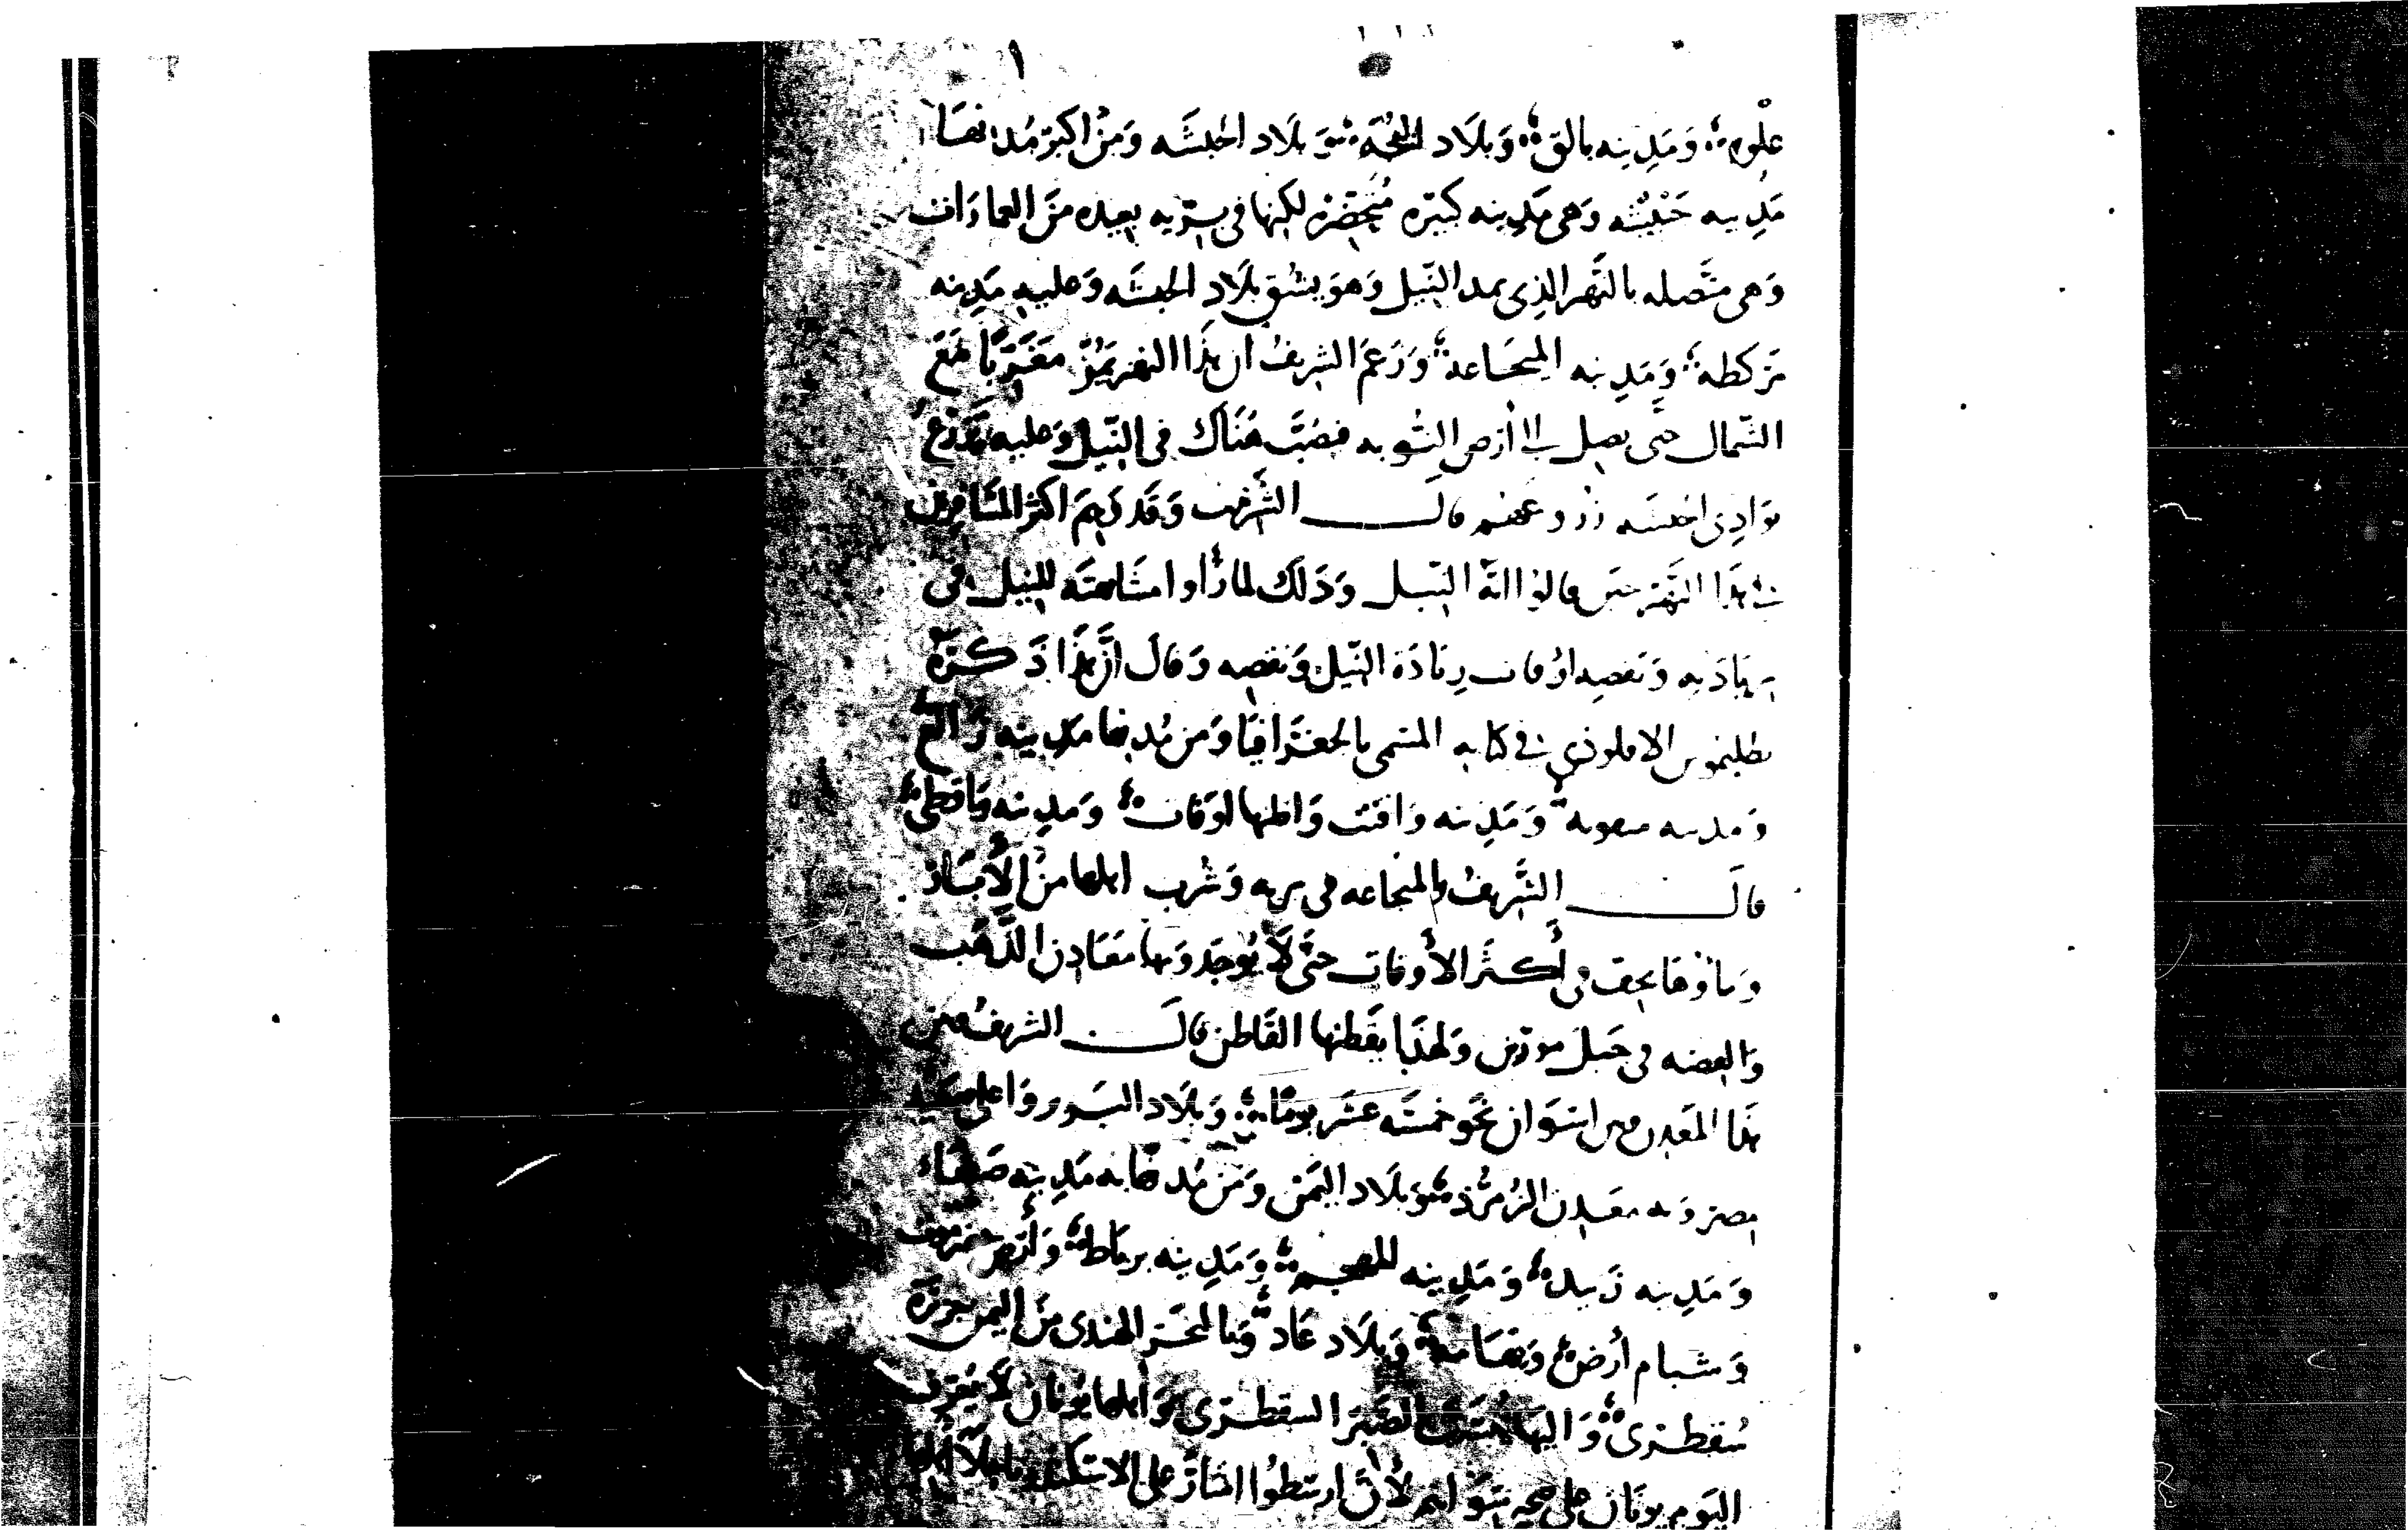 علوم ومدينه بالق وبلاد البجه وبلاد الحبشه ومن اكبر مدنها
مدينه حنبيثه وهي مدينه كبيره متحضره لكنها في بريه بعيده من العمارات
وهي متصله بالنهر الذي يمد النيل وهو يشق بلاد الحبشه وعليه مدينه
مركطه ومدينه النجاعه وزعم الشريف ان هذا النهر يمر مغربا مع
الشمال حتى يصل الى أرض النوبه فيصب هناك في النيل وعليه تزرع
بوادي الحبشه قال الشريف وقد وهم اكثر المسافرين
في هذا النهر حين قالوا انه النيل وذلك لما رأوا مشابهته للنيل في
زيادته ونقصه اوقات زيادة النيل ونقصه وقال ان هذا ذكره
بطليموس الاقلوذي في كتابه المسمى بالجغرافيا ومن مدنها مدينه زالغ
ومدينه ومدينه واقت واظنها اوقات ومدينه باقطى
قال الشريف والنجاعه في بريه وشرب اهلها من الأبار
وماؤها يجف في أكثر الأوقات حتى لا يوجد وبها معادن الذهب
والفضه في جبل مورس ولهذا يقطنها القاطن قال الشريف وبين
هذا المعدن وبين اسوان نحو خمسه عشر يوما وبلاد واعلى صعيد
مصر وبه معدن الزمرذ وبلاد اليمن ومن مدنها به مدينه صنعاء
ومدينه زبيد ومدينه المهجم ومدينه وأرض
وشبام أرض وتهامه وبلاد عاد وبالبحر الهندي من اليمن جزيره
سقطرى واليها ينسب الصبر السقطرى واهلها يونان لا يعرف
اليوم يونان على صحه سواهم لأن ارسطو اشار على الاسكندر باجلا أهلها